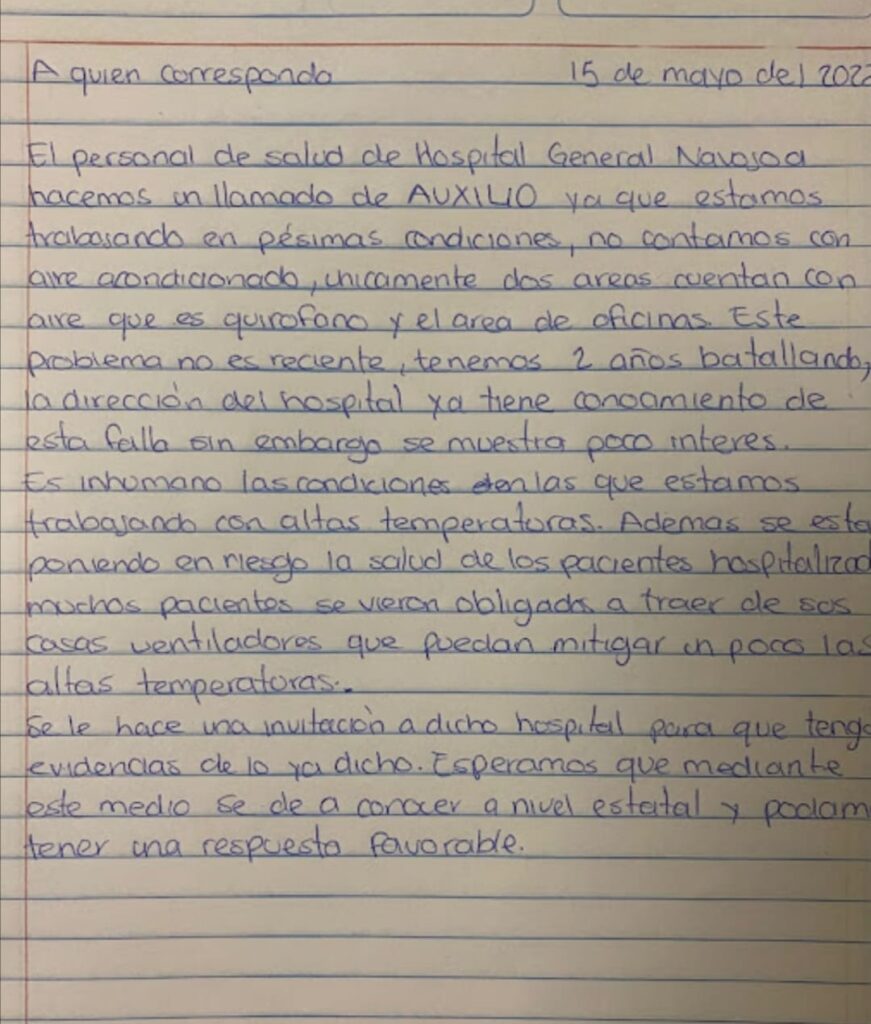 A quien corresponda 15 de mayo del 2022
El personal de salud de Hospital General Navojoa
hacemos un llamado de AUXILIO ya que estamos
trabajando en pésimas condiciones, no contamos con
aire acondicionado, unicamente dos areas cuentan con
aire que es quirofano y el area de oficinas. Este
problema no es reciente, tenemos 2 años batallando,
la dirección del hospital ya tiene conocimiento de
esta falla sin embargo se muestra poco interes.
Es inhumano las condiciones en las que estamos
trabajando con altas temperaturas. Ademas se esta
poniendo en riesgo la salud de los pacientes hospitalizad
muchos pacientes se vieron obligados a traer de sus
casas ventiladores que puedan mitigar un poco las
altas temperaturas..
Se le hace una invitación a dicho hospital para que tenga
evidencias de lo ya dicho. Esperamos que mediante
este medio se de a conocer a nivel estatal y podam
tener una respuesta favorable.